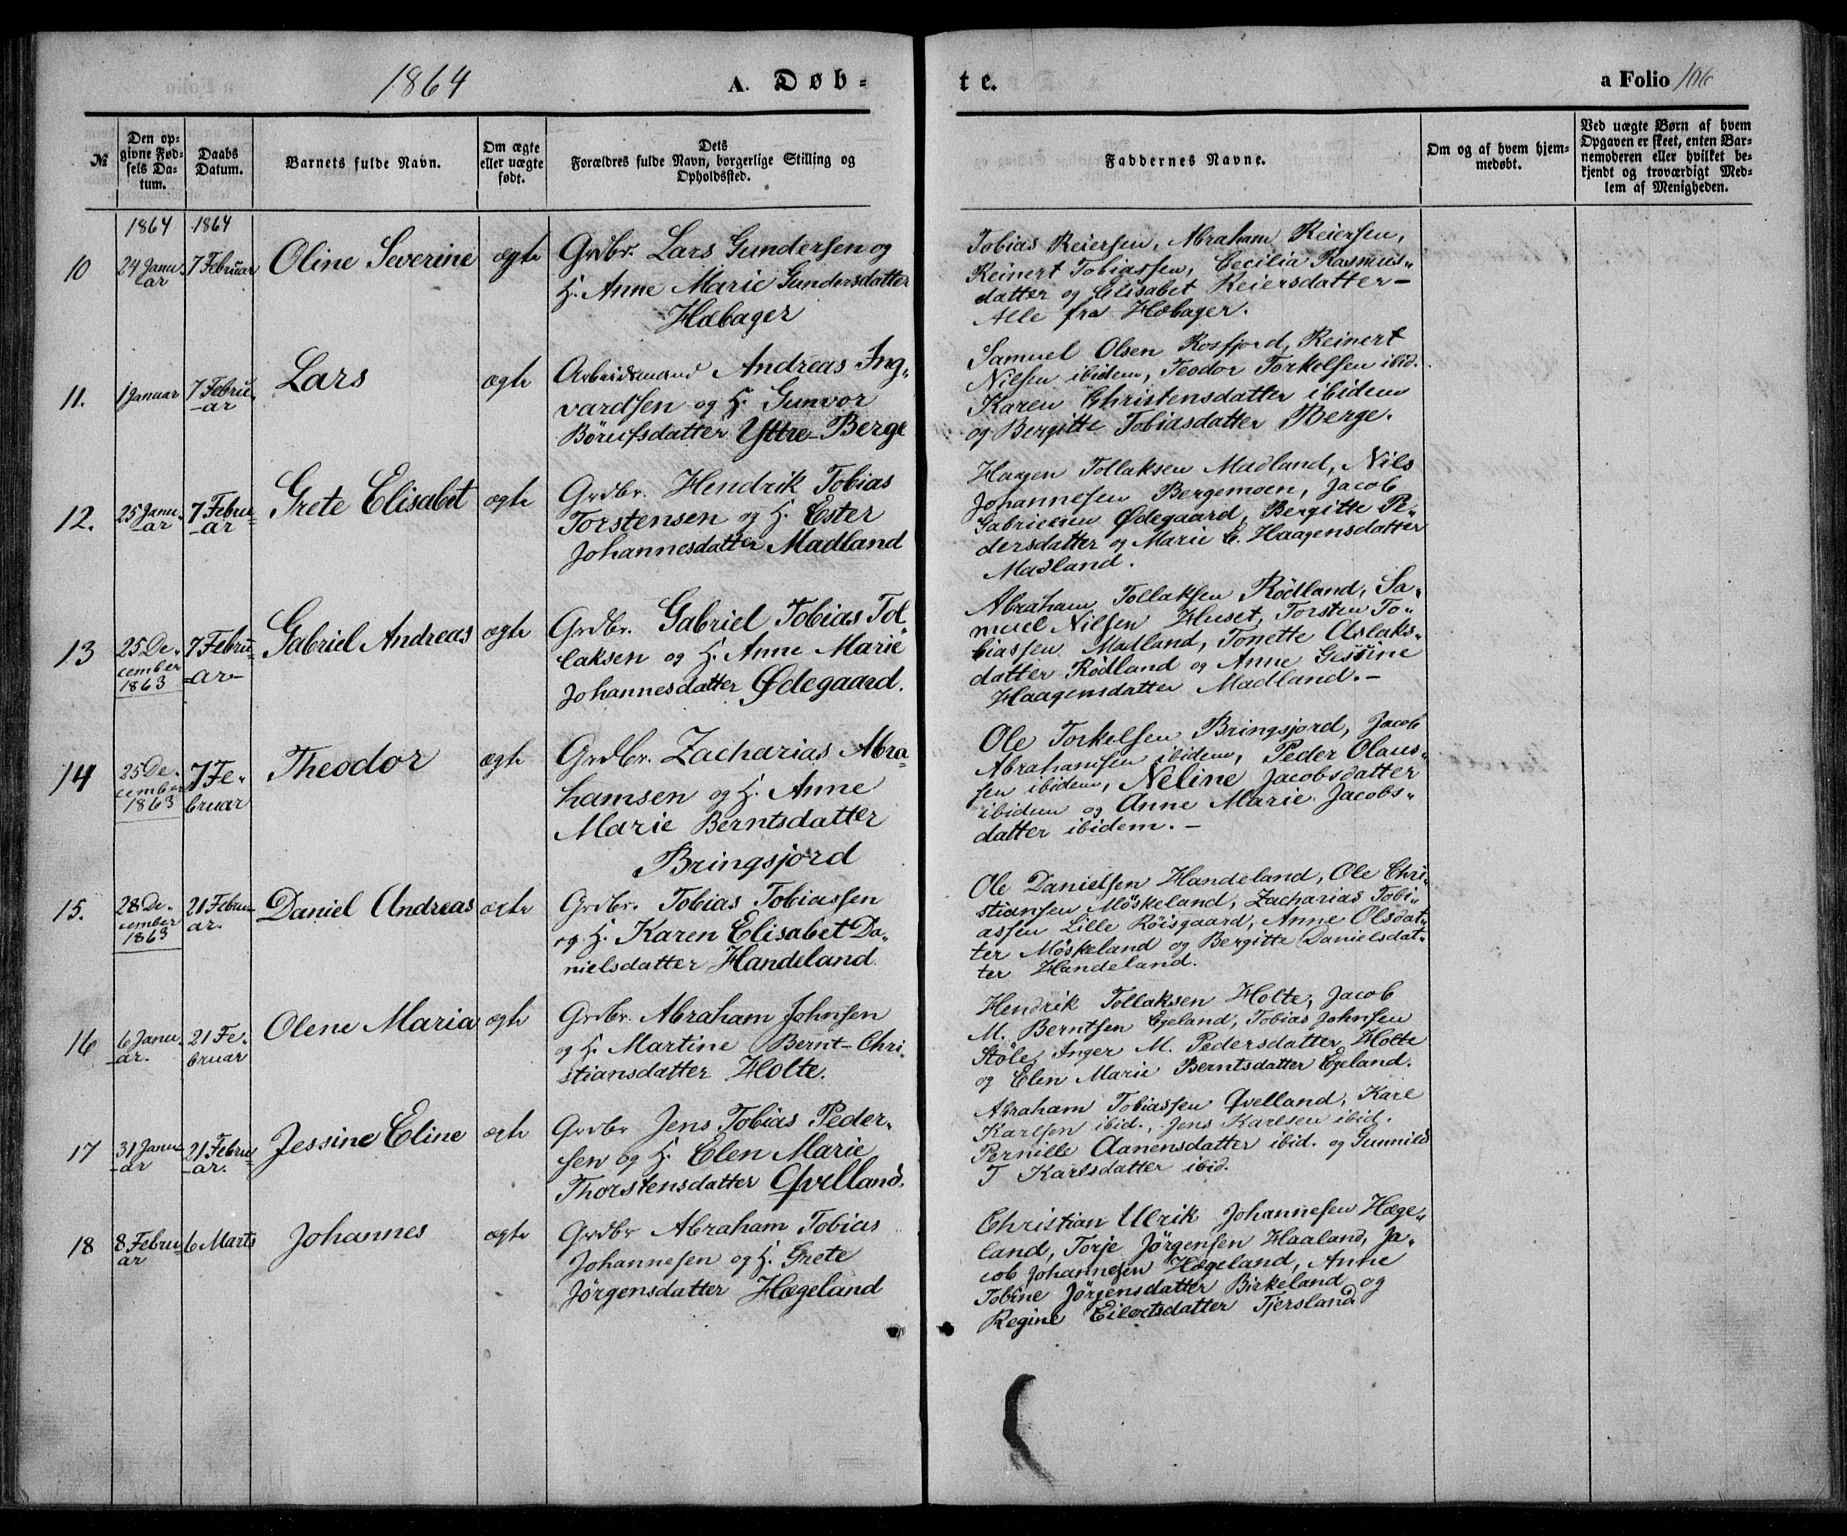 1864 A. Døb-
te. a Folio 106
№
Den op-
givne Fød-
sels Da-
tum.
Daabs
Datum.
Barnets fulde Navn.
Om ægte
eller uægte
født.
Dets
Forældres fulde Navn, borgerlige Stilling og
Opholdssted.
Faddernes Navne.
Om og af hvem hjem-
medøbt.
Ved uægte Børn af hvem
Opgaven er skeet, enten Bar-
nemoderen eller hvilket be-
kjendt og troværdigt Med-
lem af Menigheden.
1864 1864
10
24 Janu-
ar
7 Februar
Oline Severine
ægte
Grdbr. Lars Gundersen og
H. Anne Marie Gundersdatter
Høbager
Tobias Reiersen, Abraham Reiersen,
Reinert Tobiassen, Cecilia Rasmus-
datter og Elisabet Reiersdatter-
Alle fra Høbager.
11.
1 Januar
7 Febru-
ar
Lars
ægte
Arbeidsmand Andreas Ing-
vardsen og H. Gunvor
Børufsdatter Yttre-Berge
Samuel Olsen Rosfjord, Reinert
Nilsen ibidem, Teodor Torkelsen ibid.
Karen Christensdatter ibidem
og Bergitte Tobiasdatter Berge.
12.
25 Janu-
ar
7 Febru-
ar
Grete Elisabet
ægte
Grdbr. Hendrik Tobias
Torstensen og H. Ester
Johannesdatter Madland
Haagen Tollaksen Madland, Nils
Johannesen Bergemoen, Jacob
Gabrielsen Ødegaard, Bergitte Pe-
dersdatter og Marie C. Haagensdatter
Madland.
13
25 De-
cember
1863
7 Febru-
ar
Gabriel Andreas
ægte
Grdbr. Gabriel Tobias Tol-
laksen og H. Anne Marie
Johannesdatter Ødegaard.
Abraham Tollaksen Rødland, Sa-
muel Nilsen Huset, Torsten To-
biassen Madland, Tonette Aslaks-
datter Rødland og Anne Gesine
Haagensdatter Madland.-
14
25 De-
cember
1863
7 Fe-
bruar
Theodor
ægte
Grdbr. Zacharias Abra-
hamsen og H. Anne
Marie Berntsdatter
Bringsjord
Ole Torkelsen Bringsjord, Jacob
Abrahamsen ibidem, Peder Olaus-
sen ibidem, Neline Jacobsdatter
ibidem og Anne Marie Jacobs-
datter ibidem.-
15.
28 De-
cember
1863
21 Febru-
ar.
Daniel Andreas
ægte
Grdbr. Tobias Tobiassen
og H. Karen Elisabet Da-
nielsdatter Handeland
Ole Danielsen Handeland, Ole Chri-
stiansen Møskeland, Zacharias Tobi-
assen Lille Røisgaard, Anne Olsdat-
ter Møskeland og Bergitte Danielsdat-
ter Handeland.
16
6 Janu-
ar.
21 Fe-
bruar
Olene Maria
ægte
Grdbr. Abraham Johnsen
og H. Martine Bernt-Chri-
stiansdatter Holte.
Hendrik Tollaksen Holte, Jacob
M. Berntsen Egeland, Tobias Johnsen
Støle, Inger M. Pedersdatter Holte
og Elen Marie Berntsdatter Egeland.
17
31 Janu-
ar
21 Febru-
ar.
Jessine Eline
ægte
Grdbr Jens Tobias Peder-
sen og H. Elen Marie
Thorstensdatter Qvelland.
Abraham Tobiassen Qvelland, Karl
Karlsen ibid., Jens Karlsen ibid.
Pernille Aanensdatter ibid. og Gunnild
T Karlsdatter ibid.
18
8 Febru-
ar
6 Marts
Johannes
ægte
Grdbr Abraham Tobias
Johannesen og H. Grete
Jørgensdatter Hægeland
Christian Ulrik Johannesen Hæge-
land, Torje Jørgensen Haaland, Ja-
cob Johannesen Hægeland, Anne
Tobine Jørgensdatter Birkeland og
Regine Eilertsdatter Tjersland